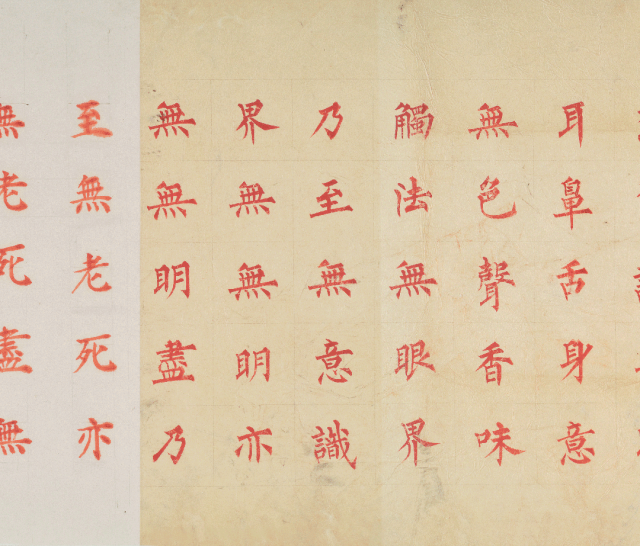 耳鼻舌身意
無色聲香味
觸法無眼界
乃至無意識
界無無明亦
無無明盡乃
至無老死亦
無老死盡無